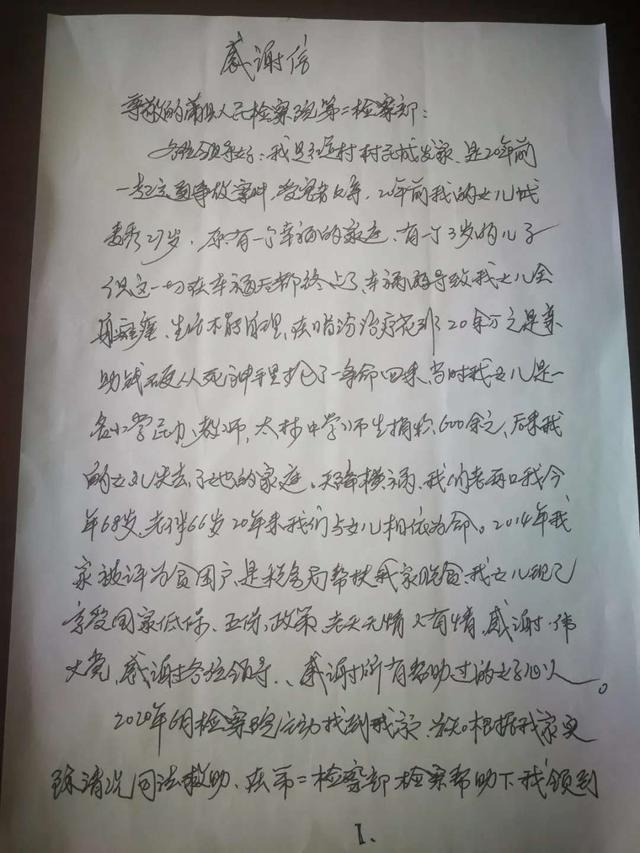 感谢信
尊敬的蒲县人民检察院第二检察部:
各位领导好:我是 村村民成发家,是20年前
一起交通事故案件,受害者父亲,20年前我的女儿成
秀27岁,原有一个幸福的家庭,有一个3岁的儿子
但这一切在车祸后都终点了,车祸导致我女儿全
身瘫痪、生活不能自理,在临汾治疗花那20余万元是
助钱硬从死神手里抢了一条命回来,当时我女儿是一
名小学民办教师,太林中学师生捐款,600余元,后来我
的女儿失去了她的家庭。天降横祸,我们老两口我今
年68岁,老伴66岁20年来我们与女儿相依为命。2014年我
家被评为贫困户,是税务局帮扶我家脱贫,我女儿现已
享受国家低保、五保,政策,老天无情人有情,感谢伟
大党,感谢各位领导、、感谢所有帮助过的好心人。
2020年6月检察院主动找到我家,告知根据我家实
际情况司法救助,在第二检察部检察帮助下我领到
1、